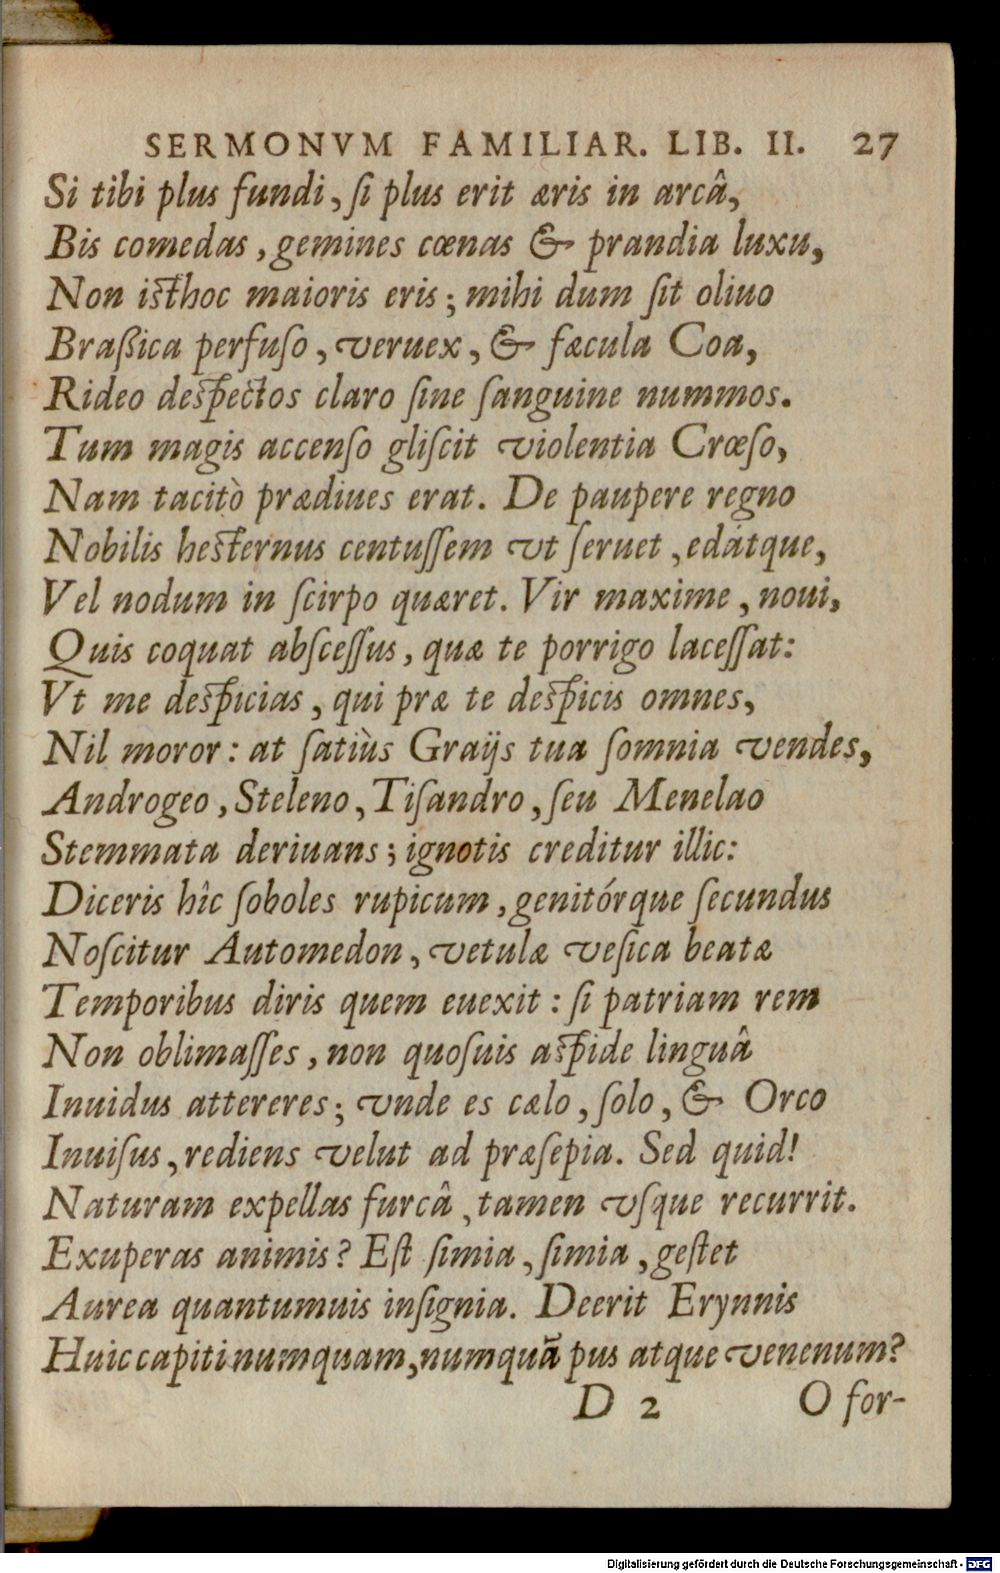 SERMONVM FAMILIAR. LIB. II. 27
Si tibi plus fundi, ſi plus erit æris in arcâ,
Bis comedas, gemines cœnas & prandia luxu,
Non iſthoc maioris eris; mihi dum ſit oliuo
Braßica perfuſo, veruex, & fæcula Coa,
Rideo deſpectos claro ſine ſanguine nummos.
Tum magis accenſo gliſcit violentia Crœſo,
Nam tacitò prædiues erat. De paupere regno
Nobilis heſternus centuſſem vt ſeruet, edátque,
Vel nodum in ſcirpo quæret. Vir maxime, noui,
Quis coquat abſceſſus, quæ te porrigo laceſſat:
Vt me deſpicias, qui præ te deſpicis omnes,
Nil moror: at ſatiùs Graijs tua ſomnia vendes,
Androgeo, Steleno, Tiſandro, ſeu Menelao
Stemmata deriuans; ignotis creditur illic:
Diceris hîc ſoboles rupicum, genitórque ſecundus
Noſcitur Automedon, vetulæ veſica beatæ
Temporibus diris quem euexit: ſi patriam rem
Non oblimaſſes, non quoſuis aſpide linguâ
Inuidus attereres; vnde es cælo, ſolo, & Orco
Inuiſus, rediens velut ad præſepia. Sed quid!
Naturam expellas furcâ, tamen vſque recurrit.
Exuperas animis? Eſt ſimia, ſimia, geſtet
Aurea quantumuis inſignia. Deerit Erynnis
Huic capiti numquam, numquã pus atque venenum?
D 2 O for-
Digitalisierung gefördert durch die Deutsche Forschungsgemeinschaft - DFG